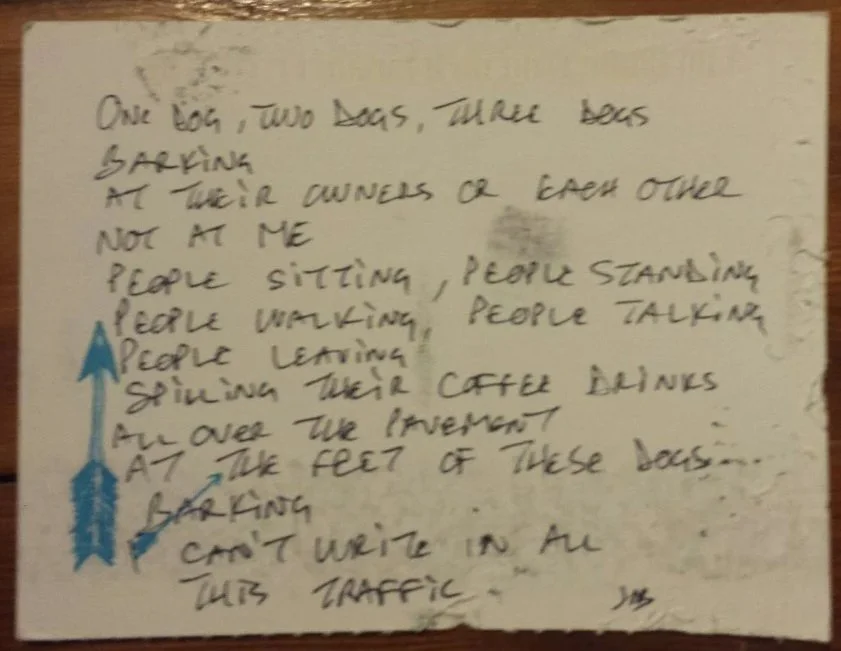 ONE DOG, TWO DOGS, THREE DOGS
BARKING
AT THEIR OWNERS OR EACH OTHER
NOT AT ME
PEOPLE SITTING, PEOPLE STANDING
PEOPLE WALKING, PEOPLE TALKING
PEOPLE LEAVING
SPILLING THEIR COFFEE DRINKS
ALL OVER THE PAVEMENT
AT THE FEET OF THESE DOGS...
BARKING
I CAN'T WRITE IN ALL
THIS TRAFFIC.